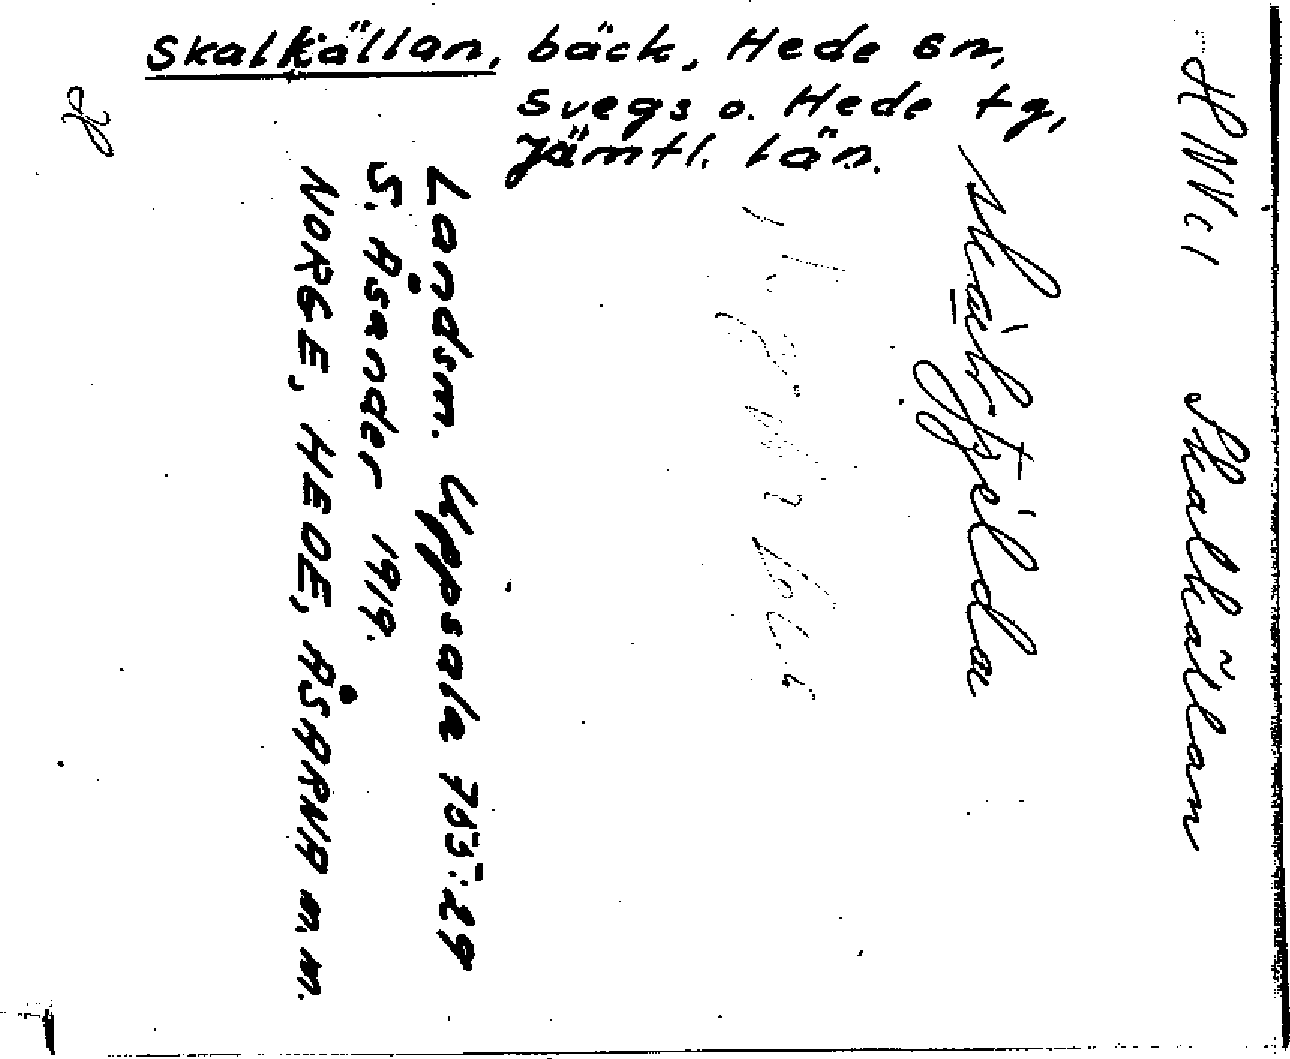 Skalkällan, bäck, Hede sn,
Svegs o. Hede tg,
Jämtl. län.
HNV c 1 Skalkällan
Landsm. Uppsala 753:29
S. Åsander 1919.
NORGE, HEDE, ÅSARNA m.m.
H